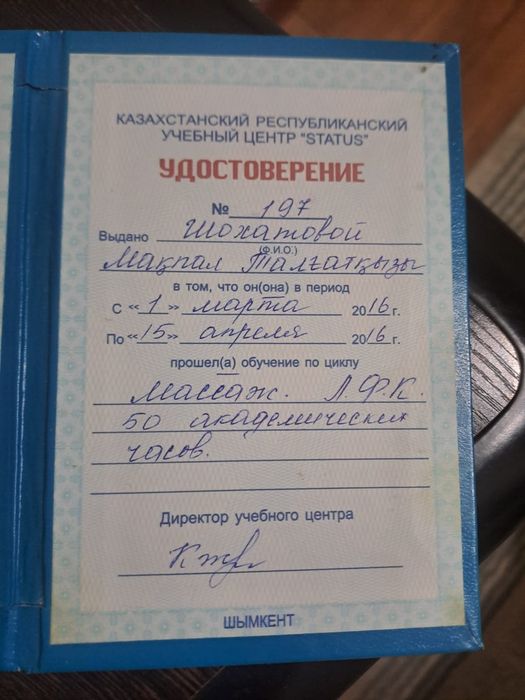 КАЗАХСТАНСКИЙ РЕСПУБЛИКАНСКИЙ
УЧЕБНЫЙ ЦЕНТР "STATUS"
УДОСТОВЕРЕНИЕ
№ 197
Выдано Шохатовой
(Ф.И.О.)
Мақпал Талғатқызы
в том, что он(она) в период
С «1» марта 2016 г.
По «15» апреля 2016 г.
прошел(а) обучение по циклу
Массаж. Л.Ф.К.
50 академических
часов.
Директор учебного центра
ШЫМКЕНТ